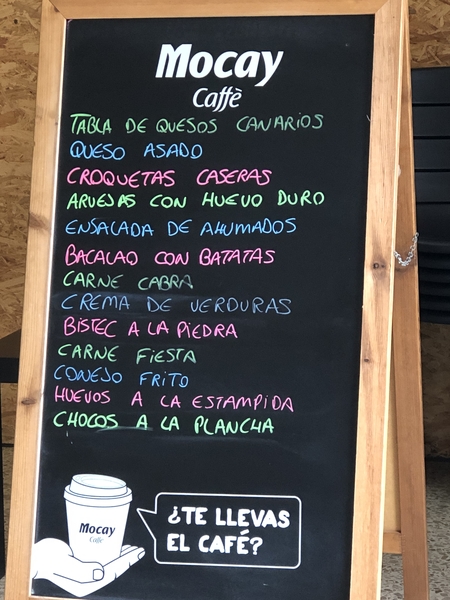 Mocay
Caffè
TABLA DE QUESOS CANARIOS
QUESO ASADO
CROQUETAS CASERAS
ARVEJAS CON HUEVO DURO
ENSALADA DE AHUMADOS
BACALAO CON BATATAS
CARNE CABRA
CREMA DE VERDURAS
BISTEC A LA PIEDRA
CARNE FIESTA
CONEJO FRITO
HUEVOS A LA ESTAMPIDA
CHOCOS A LA PLANCHA
Mocay
Caffè
¿TE LLEVAS
EL CAFÉ?